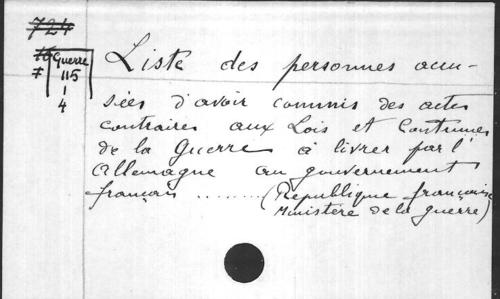 724
16 Guerre
7 115
1
4
Liste des personnes accu-
sées d'avoir commis des actes
contraires aux Lois et Coutumes
de la Guerre à livrer par l'
Allemagne au gouvernement
français ........ (République française
Ministère de la guerre)